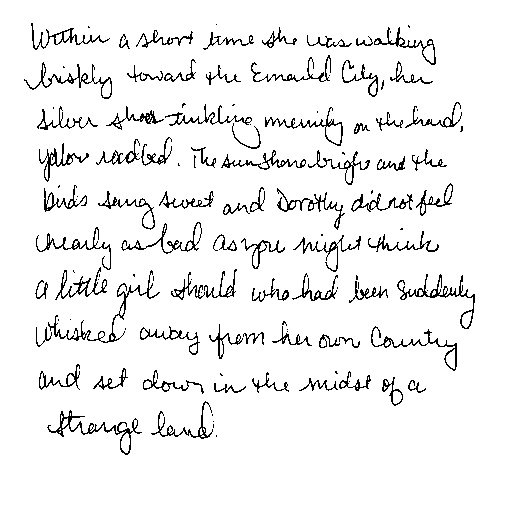 Within a short time she was walking
briskly toward the Emerald City, her
silver shoes tinkling merrily on the hard,
yellow roadbed. The sun shone bright and the
birds sang sweet and Dorothy did not feel
nearly as bad as you might think
a little girl should who had been suddenly
whisked away from her own country
and set down in the midst of a
strange land.